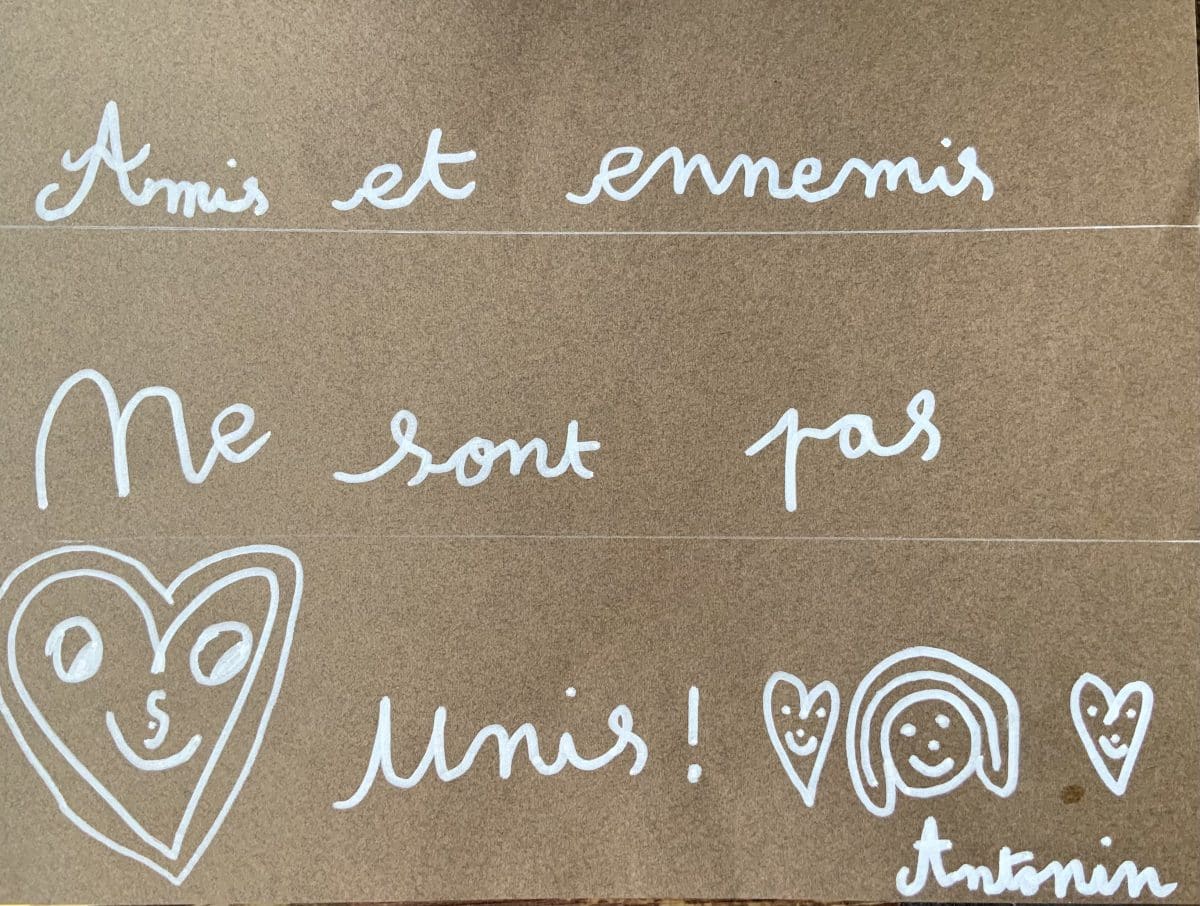 Amis et ennemis
Ne sont pas
Unis !
Antonin